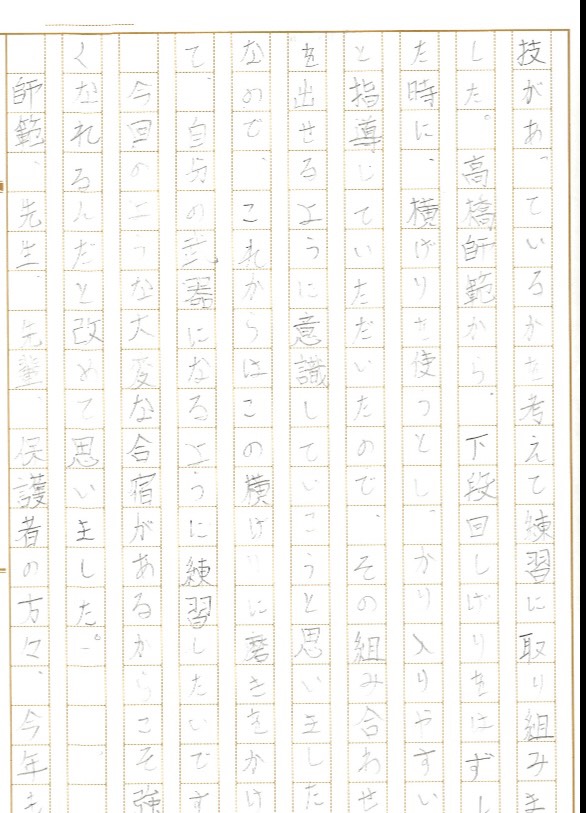 技があっているかを考えて練習に取り組みま
した。高橋師範から、下段回しげりをにずし
た時に、横げりを使うとし、かり入りやすい
と指導していただいたので、その組み合わせ
を出せるように意識していこうと思いました
なので、これからはこの横げりに磨きをかけ
て、自分の武器になるように練習したいです
今回のような大変な合宿があるからこそ強
くなれるんだと改めて思いました。
師範、先生、先輩、保護者の方々、今年も